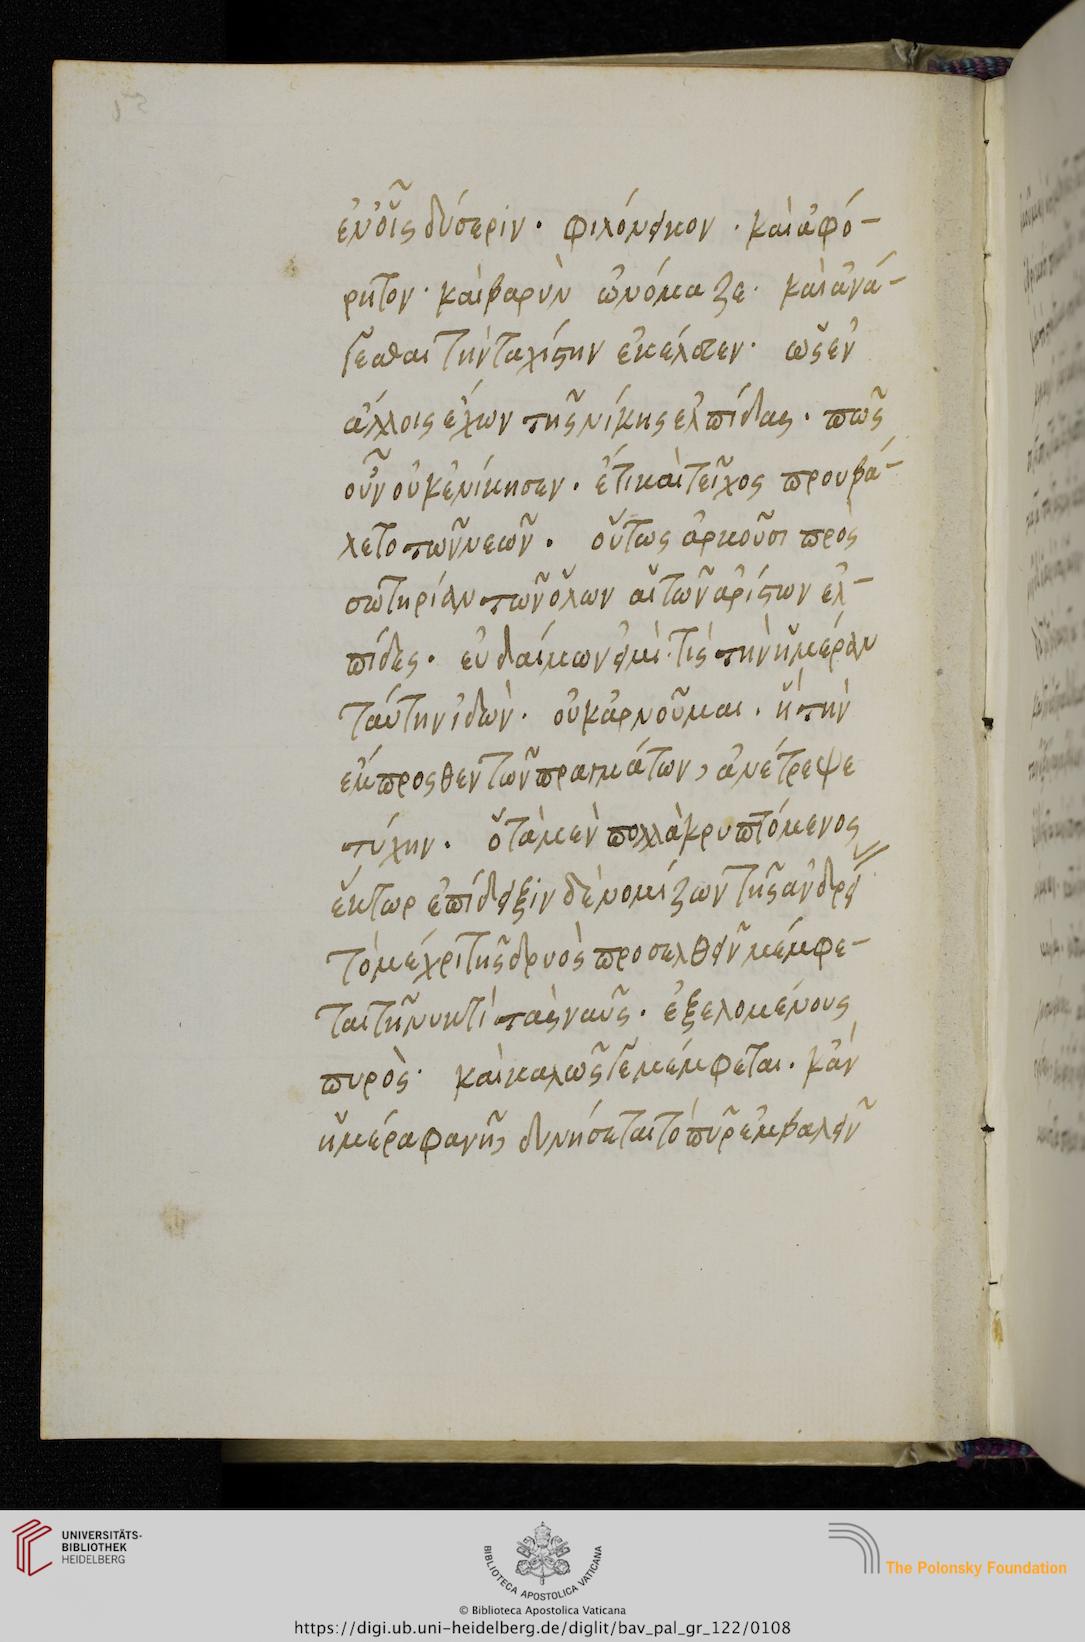 ἐν οἷς δύσεριν· φιλόνεικον· καὶ ἀφό-
ρητον· καὶ βαρὺν ὠνόμαζε· καὶ ἀνά-
γεσθαι τὴν ταχίστην ἐκέλευεν· ὡς ἐν
ἄλλοις ἔχων τῆς νίκης ἐλπίδας· πῶς
οὖν οὐκ ἐνίκησεν· ἔτι καὶ τεῖχος προυβά-
λετο τῶν νεῶν· οὕτως ἀρκοῦσι πρὸς
σωτηρίαν τῶν ὅλων αἱ τῶν ἀρίστων ἐλ-
πίδες· εὐδαίμων εἰμί τις τὴν ἡμέραν
ταύτην ἰδὼν· οὐκ ἀρνοῦμαι· ἣ τὴν
ἔμπροσθεν τῶν πραγμάτων, ἀνέτρεψε
τύχην· ὁ τὰ μὲν πολλὰ κρυπτόμενος
ἕκτωρ ἐπίδειξιν δὲ νομίζων τῆς ἀνδρεί
τὸ μέχρι τῆς δρυὸς προσελθεῖν μέμφε-
ται τῇ νυκτὶ τὰς ναῦς· ἐξελομένους
πυρὸς· καὶ καλῶς γε μέμφεται· κἂν
ἡμέρα φανῇ, δυνήσεται τὸ πῦρ ἐμβαλεῖν
UNIVERSITÄTS-
BIBLIOTHEK
HEIDELBERG
BIBLIOTECA APOSTOLICA VATICANA
The Polonsky Foundation
© Biblioteca Apostolica Vaticana
https://digi.ub.uni-heidelberg.de/diglit/bav_pal_gr_122/0108